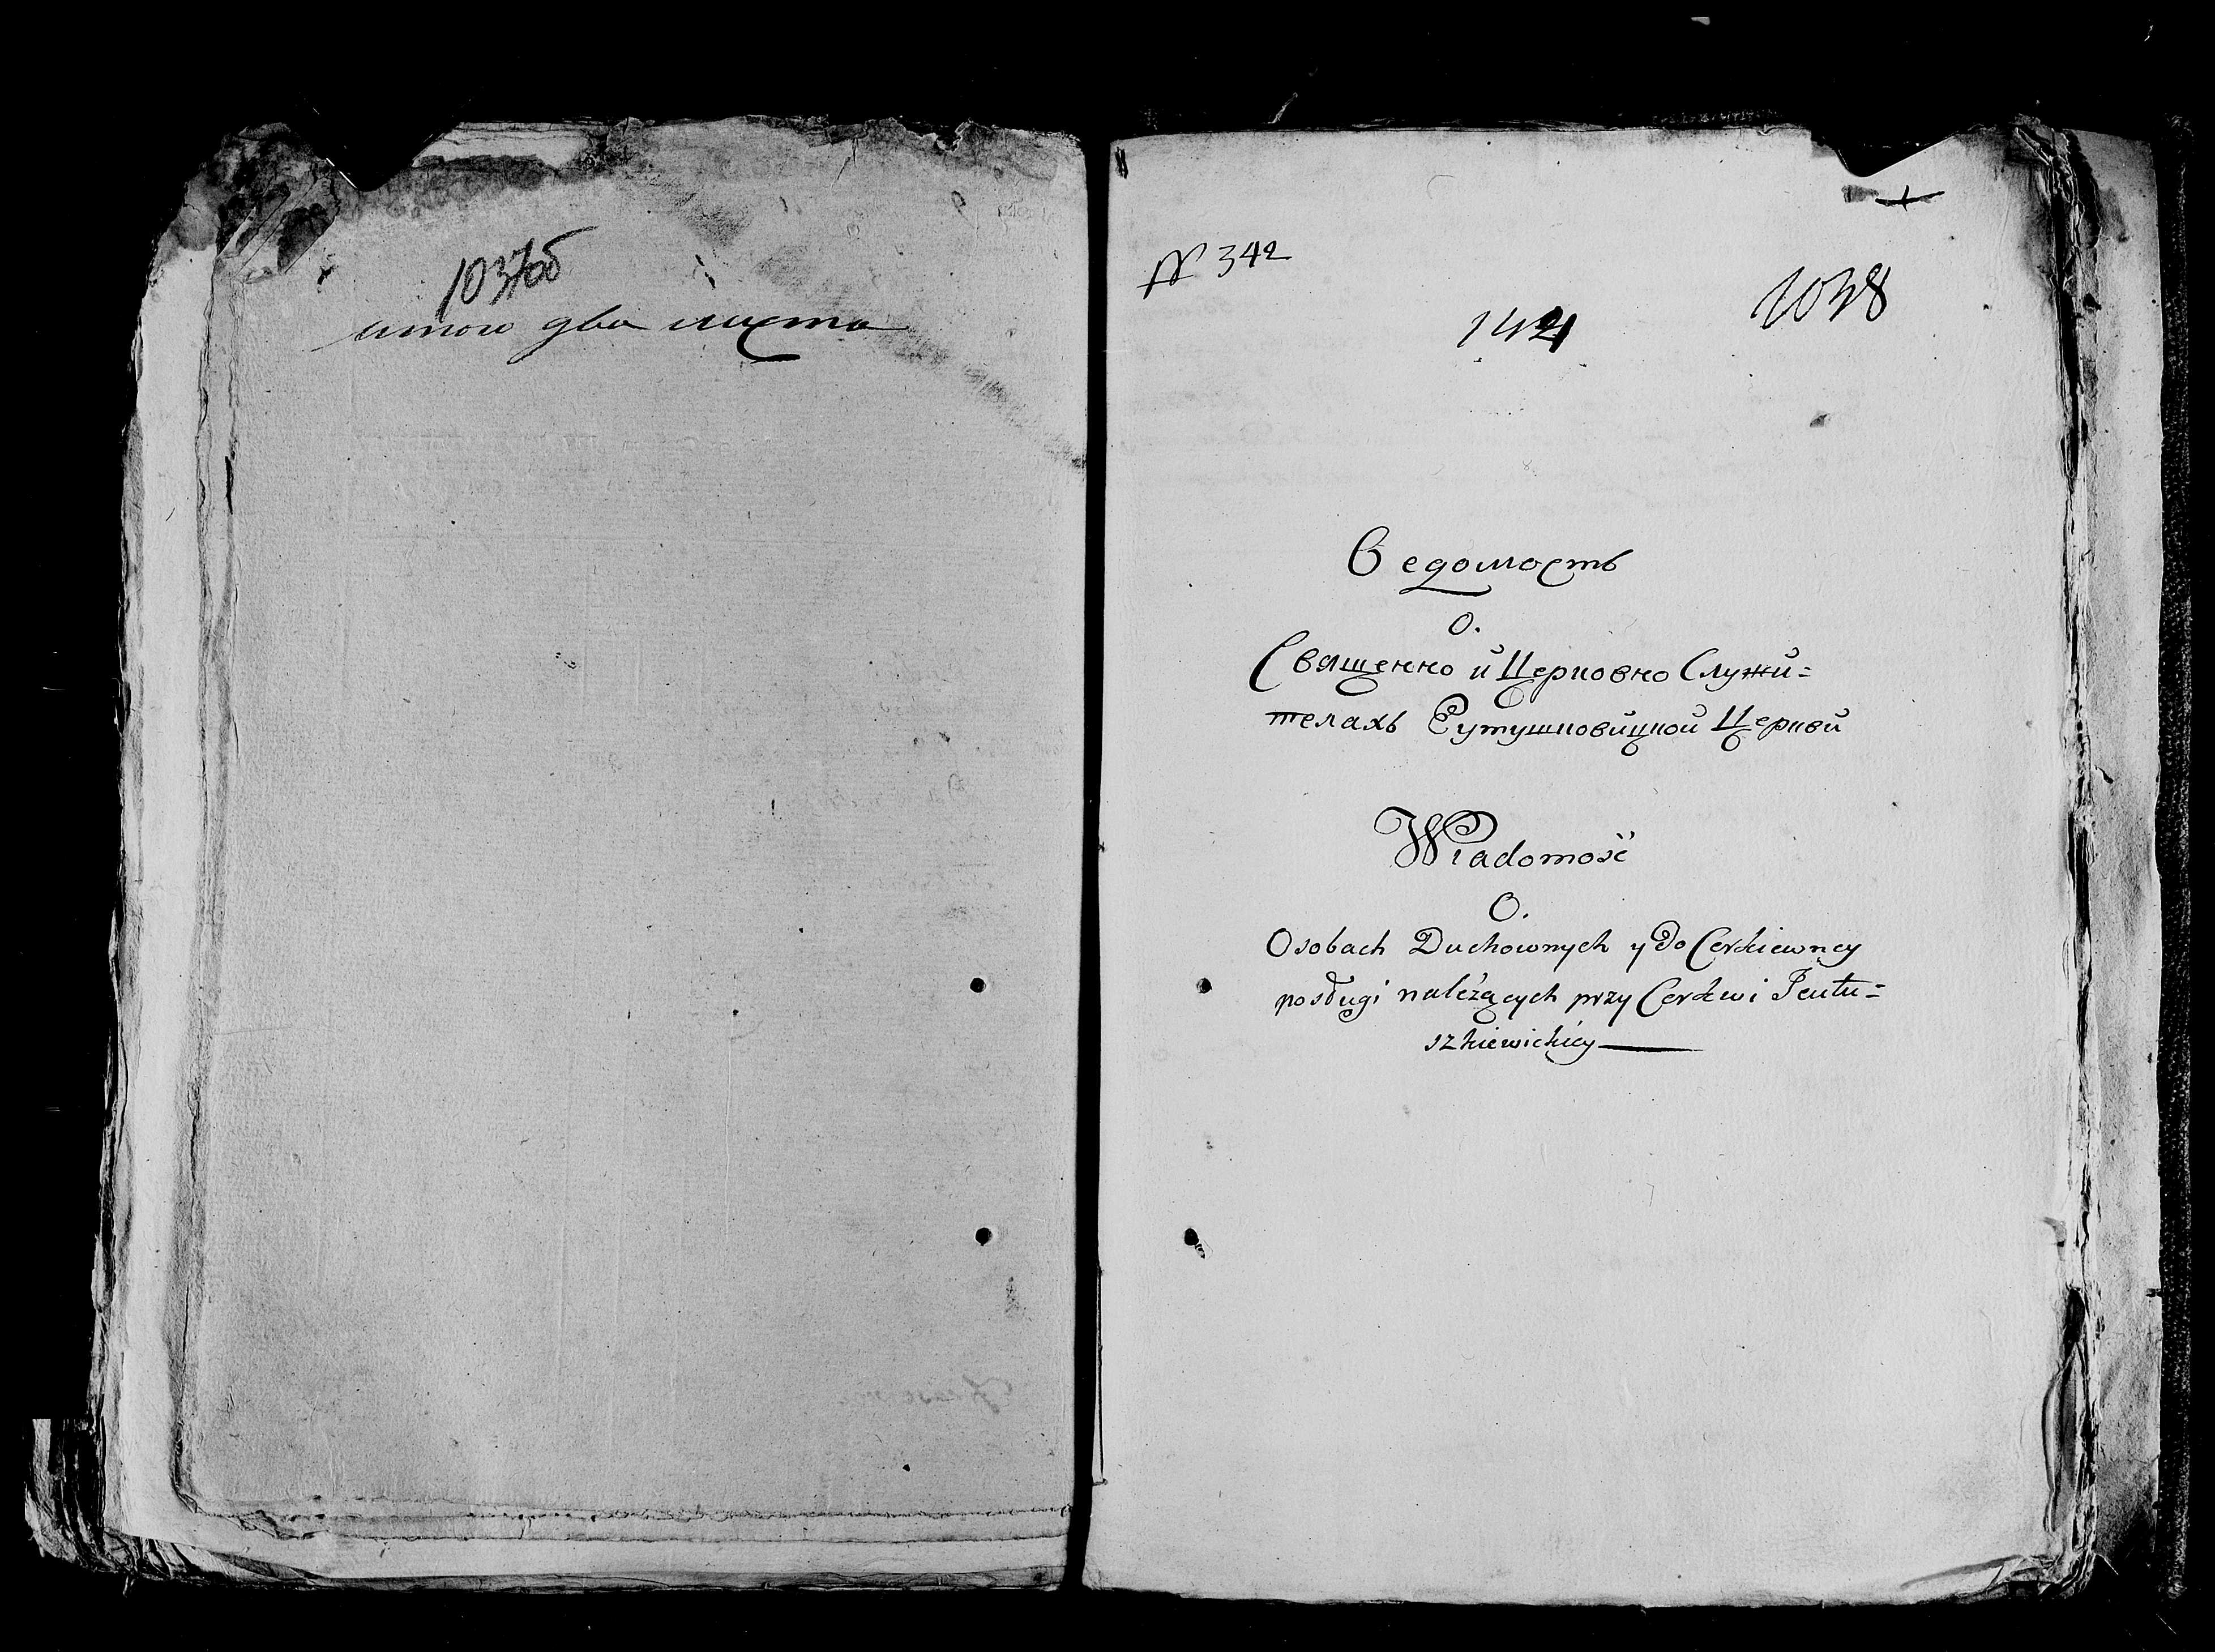 1037об
итого два листа
№ 342
1038
Ведомость
о.
Священно й Церковно Служй=
телахь Еутушковйцкой Церквй
Wiadomość
O.
Osobach Duchownych y do Cerkiewney
posługi należących przy Cerkwi Jeutu=
szkiewickiey